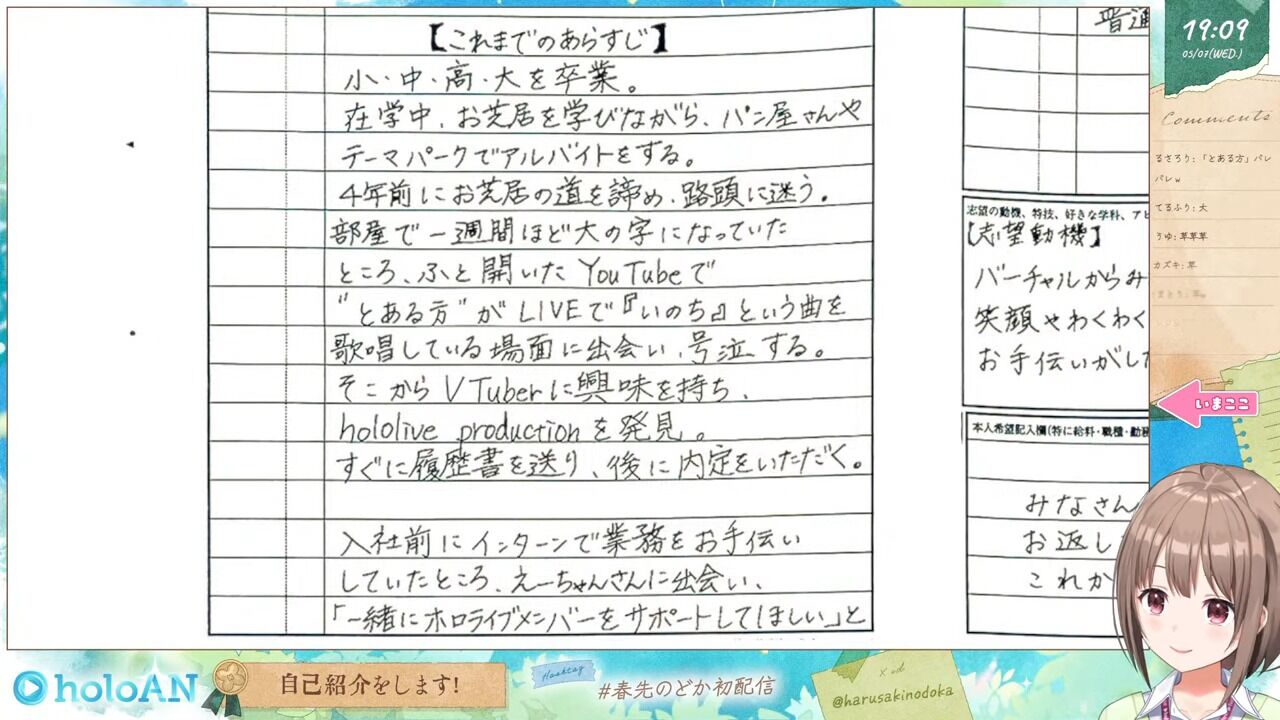 【これまでのあらすじ】
小・中・高・大を卒業。
在学中、お芝居を学びながら、パン屋さんや
テーマパークでアルバイトをする。
4年前にお芝居の道を諦め、路頭に迷う。
部屋で一週間ほど大の字になっていた
ところ、ふと開いたYouTubeで
"とある方"がLIVEで『いのち』という曲を
歌唱している場面に出会い、号泣する。
そこからVTuberに興味を持ち、
hololive productionを発見。
すぐに履歴書を送り、後に内定をいただく。
入社前にインターンで業務をお手伝い
していたところ、えーちゃんさんに出会い、
「一緒にホロライブメンバーをサポートしてほしい」と
普通
志望の動機、特技、好きな学科、アピ
【志望動機】
バーチャルからみ
笑顔やわくわく
お手伝いがした
本人希望記入欄(特に給料・職種・勤務
みなさん
お返し
これか
19:09
05/07(WED.)
Comments
るさろり:「とある方」バレ
バレw
てるふり: 大
うゆ: 草草草
カズキ: 草
いまココ
holoAN
自己紹介をします!
Hashtag
#春先のどか初配信
X id
@harusakinodoka